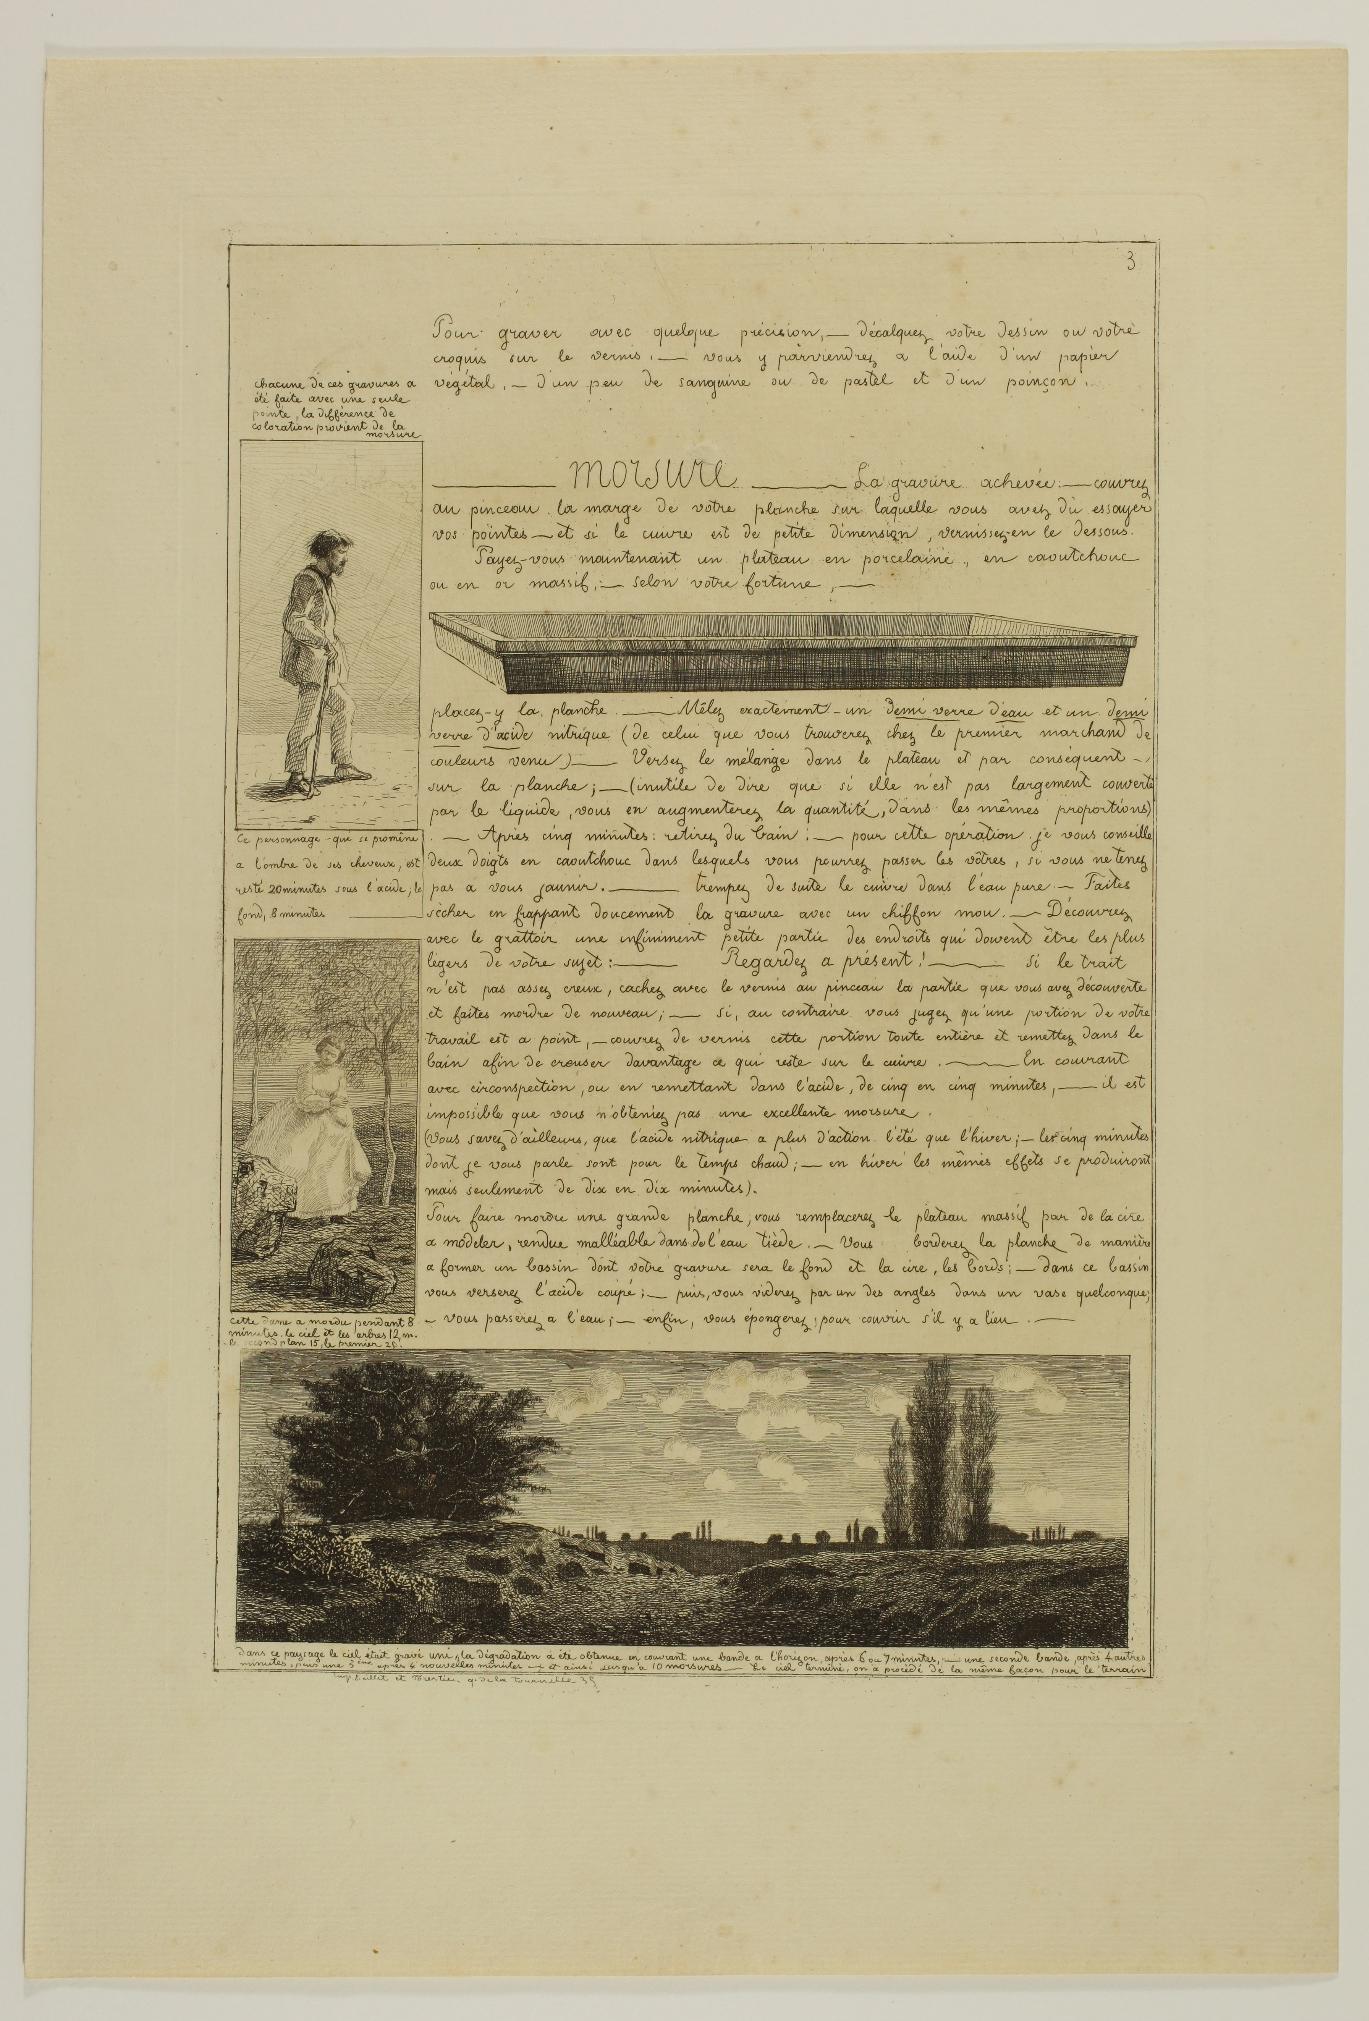 3
Pour graver avec quelque précision, — décalquez votre dessin ou votre
croquis sur le vernis. — vous y parviendrez a l'aide d'un papier
végétal. — d'un peu de sanguine ou de pastel et d'un poinçon.
chacune de ces gravures a
été faite avec une seule
pointe, la différence de
coloration provient de la
morsure
morsure — La gravure achevée: — couvrez
au pinceau la marge de votre planche sur laquelle vous avez dû essayer
vos pointes — et si le cuivre est de petite dimension, vernissez-en le dessous.
Payez-vous maintenant un plateau en porcelaine, en caoutchouc
ou en or massif; — selon votre fortune, —
placez-y la planche — Mêlez exactement — un demi verre d'eau et un demi
verre d'acide nitrique (de celui que vous trouverez chez le premier marchand de
couleurs venu) — Versez le mélange dans le plateau et par conséquent —,
sur la planche; — (inutile de dire que si elle n'est pas largement couverte
par le liquide, vous en augmenterez la quantité, dans les mêmes proportions)
. — Après cinq minutes: retirez du bain: — pour cette opération je vous conseille
deux doigts en caoutchouc dans lesquels vous pourrez passer les vôtres, si vous ne tenez
pas a vous jaunir. — trempez de suite le cuivre dans l'eau pure — Faites
sécher en frappant doucement la gravure avec un chiffon mou. — Découvrez
avec le grattoir une infiniment petite partie des endroits qui doivent être les plus
légers de votre sujet: — Regardez a présent! — si le trait
n'est pas assez creux, cachez avec le vernis au pinceau la partie que vous avez découverte
et faites mordre de nouveau; — si, au contraire vous jugez qu'une portion de votre
travail est a point, — couvrez de vernis cette portion toute entière et remettez dans le
bain afin de creuser davantage ce qui reste sur le cuivre. — En couvrant
avec circonspection, ou en remettant dans l'acide, de cinq en cinq minutes, — il est
impossible que vous n'obteniez pas une excellente morsure.
(Vous savez d'ailleurs, que l'acide nitrique a plus d'action l'été que l'hiver; — les cinq minutes
dont je vous parle sont pour le temps chaud; — en hiver les mêmes effets se produiront
mais seulement de dix en dix minutes).
Pour faire mordre une grande planche, vous remplacerez le plateau massif par de la cire
a modeler, rendue malléable dans de l'eau tiède. — Vous borderez la planche de manière
a former un bassin dont votre gravure sera le fond et la cire, les bords; — dans ce bassin
vous verserez l'acide coupé; — puis, vous viderez par un des angles dans un vase quelconque;
— vous passerez a l'eau; — enfin, vous épongerez, pour couvrir s'il y a lieu. —
Ce personnage — que se promène
a l'ombre de ses cheveux, est
resté 20 minutes sous l'acide; le
fond, 8 minutes
cette dame a mordu pendant 8
minutes, le ciel et les arbres 12 m.
le second plan 15, le premier 25.
dans ce paysage le ciel était gravé uni, la dégradation a été obtenue en couvrant une bande a l'horizon, après 6 ou 7 minutes, — une seconde bande, après 4 autres
minutes, puis une 3ème après 4 nouvelles minutes — et ainsi jusqu'a 10 morsures — Le ciel terminé, on a procédé de la même façon pour le terrain
et q. de la tournelle 35